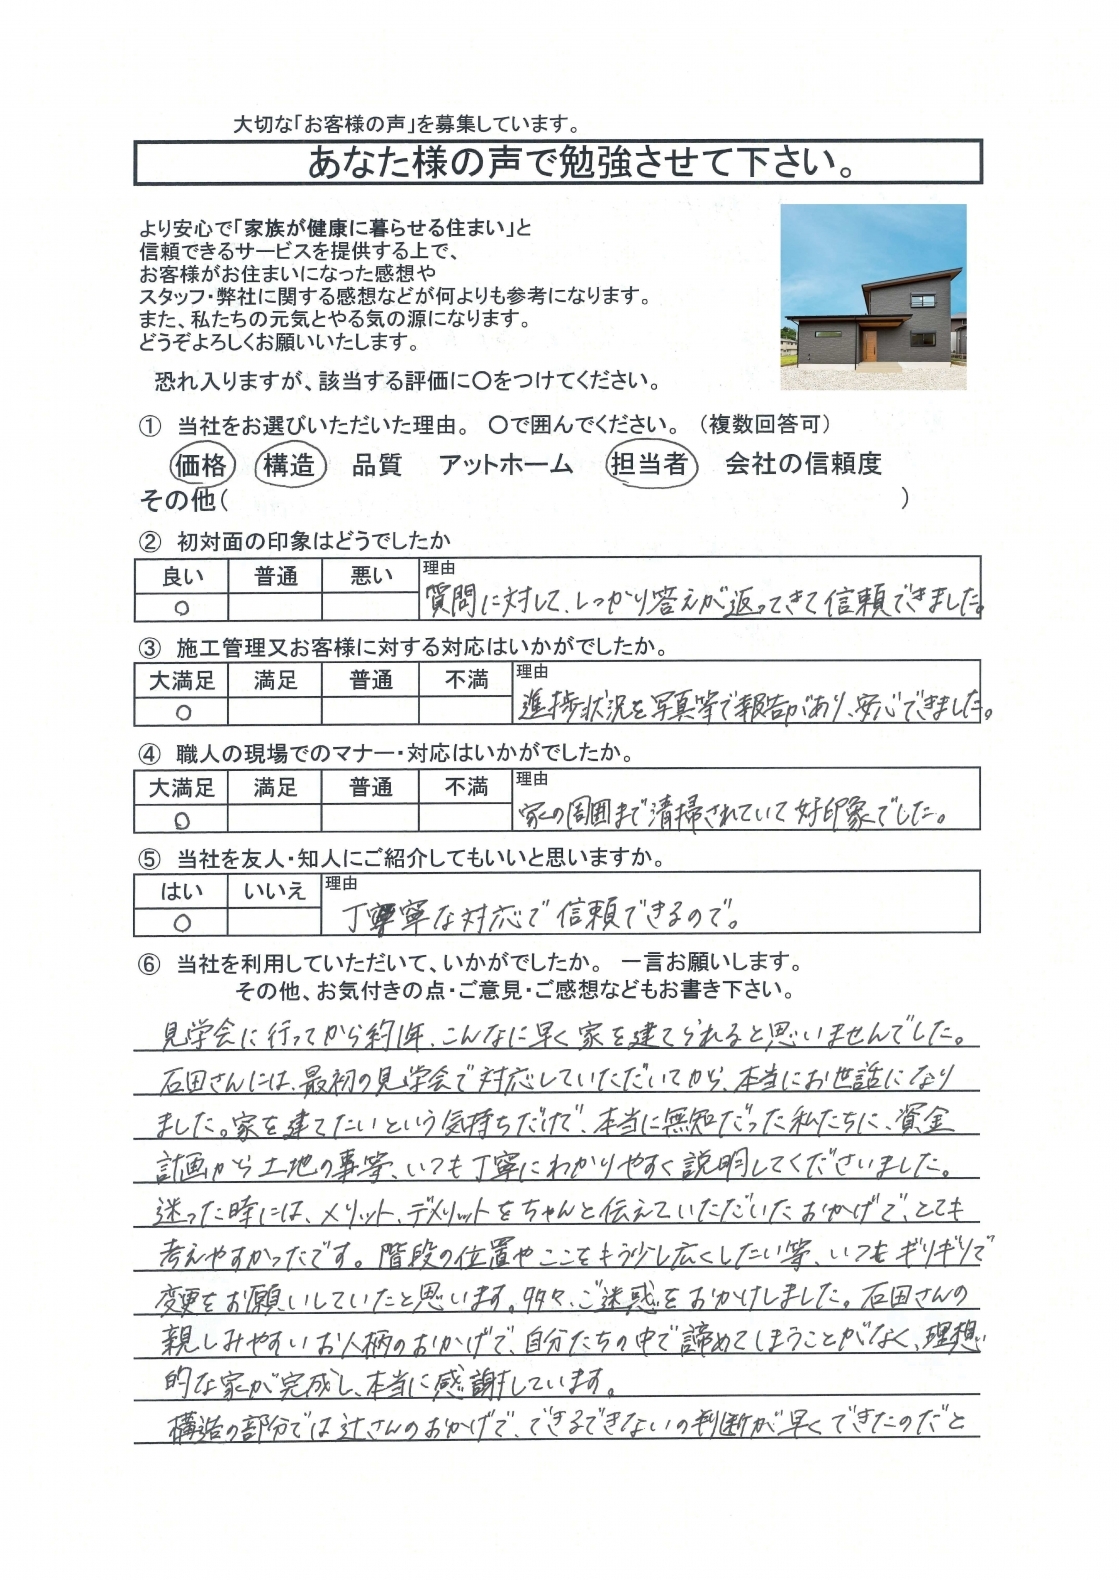 大切な「お客様の声」を募集しています。
あなた様の声で勉強させて下さい。
より安心で「家族が健康に暮らせる住まい」と
信頼できるサービスを提供する上で、
お客様がお住まいになった感想や
スタッフ・弊社に関する感想などが何よりも参考になります。
また、私たちの元気とやる気の源になります。
どうぞよろしくお願いいたします。
恐れ入りますが、該当する評価に〇をつけてください。
① 当社をお選びいただいた理由。 〇で囲んでください。 （複数回答可）
価格 構造 品質 アットホーム 担当者 会社の信頼度
その他（ ）
② 初対面の印象はどうでしたか
良い 普通 悪い 理由
○ 質問に対して、しっかり答えが返ってきて信頼できました。
③ 施工管理又お客様に対する対応はいかがでしたか。
大満足 満足 普通 不満 理由
○ 進捗状況を写真等で報告があり、安心できました。
④ 職人の現場でのマナー・対応はいかがでしたか。
大満足 満足 普通 不満 理由
○ 家の周囲まで清掃されていて好印象でした。
⑤ 当社を友人・知人にご紹介してもいいと思いますか。
はい いいえ 理由
○ 丁寧な対応で信頼できるので。
⑥ 当社を利用していただいて、いかがでしたか。 一言お願いします。
その他、お気付きの点・ご意見・ご感想などもお書き下さい。
見学会に行ってから約1年、こんなに早く家を建てられると思いませんでした。
石田さんには、最初の見学会で対応していただいてから、本当にお世話になり
ました。家を建てたいという気持ちだけで、本当に無知だった私たちに、資金
計画から土地の事等、いつも丁寧にわかりやすく説明してくださいました。
迷った時には、メリット、デメリットをちゃんと伝えていただいたおかげで、とても
考えやすかったです。階段の位置やここをもう少し広くしたい等、いつもギリギリで
変更をお願いしていたと思います。多々、ご迷惑をおかけしました。石田さんの
親しみやすいお人柄のおかげで、自分たちの中で諦めてしまうことがなく、理想
的な家が完成し、本当に感謝しています。
構造の部分では辻さんのおかげで、できるできないの判断が早くできたのだと